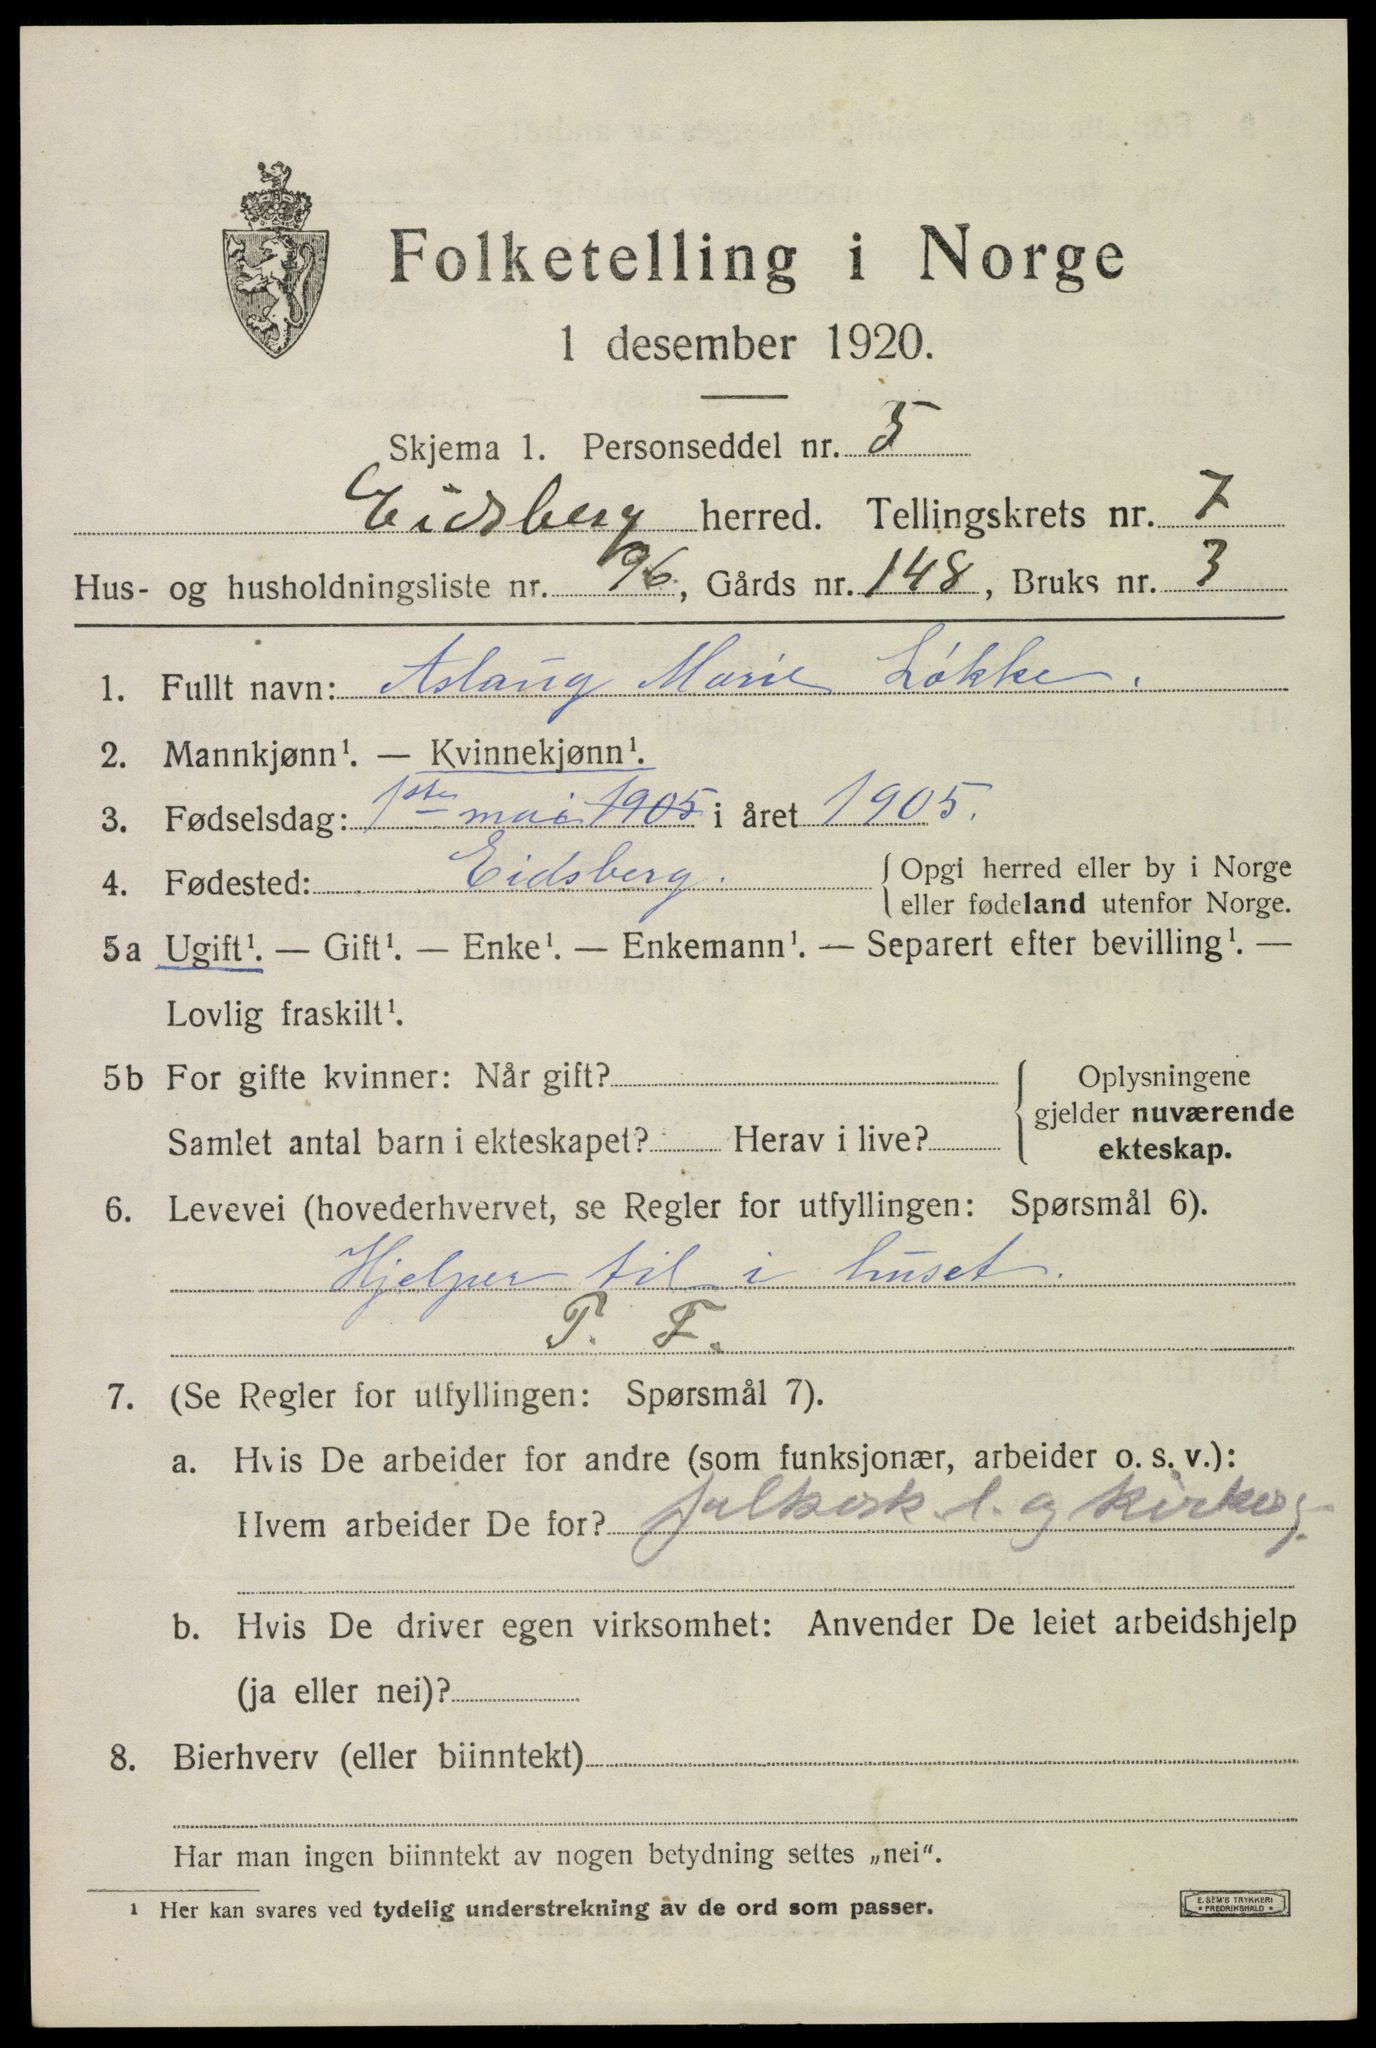 Folketelling i Norge
1 desember 1920.
Skjema 1. Personseddel nr. 5
Eidsberg herred. Tellingskrets nr. 7
Hus- og husholdningsliste nr. 96, Gårds nr. 148, Bruks nr. 3
1. Fullt navn: Aslaug Marie Løkke.
2. Mannkjønn¹. — Kvinnekjønn¹.
3. Fødselsdag: 1ste mai 1905 i året 1905.
4. Fødested: Eidsberg. { Opgi herred eller by i Norge
eller fødeland utenfor Norge.
5a Ugift¹. — Gift¹. — Enke¹. — Enkemann¹. — Separert efter bevilling¹. —
Lovlig fraskilt¹.
5b For gifte kvinner: Når gift? Oplysningene
gjelder nuværende
Samlet antal barn i ekteskapet? Herav i live? ekteskap.
6. Levevei (hovederhvervet, se Regler for utfyllingen: Spørsmål 6).
Hjelper til i huset.
T. F.
7. (Se Regler for utfyllingen: Spørsmål 7).
a. Hvis De arbeider for andre (som funksjonær, arbeider o. s. v.):
Hvem arbeider De for? l. og kirkesg.
b. Hvis De driver egen virksomhet: Anvender De leiet arbeidshjelp
(ja eller nei)?
8. Bierhverv (eller biinntekt)
Har man ingen biinntekt av nogen betydning settes „nei“.
¹ Her kan svares ved tydelig understrekning av de ord som passer.
E. SEM'S TRYKKERI
FREDRIKSHALD